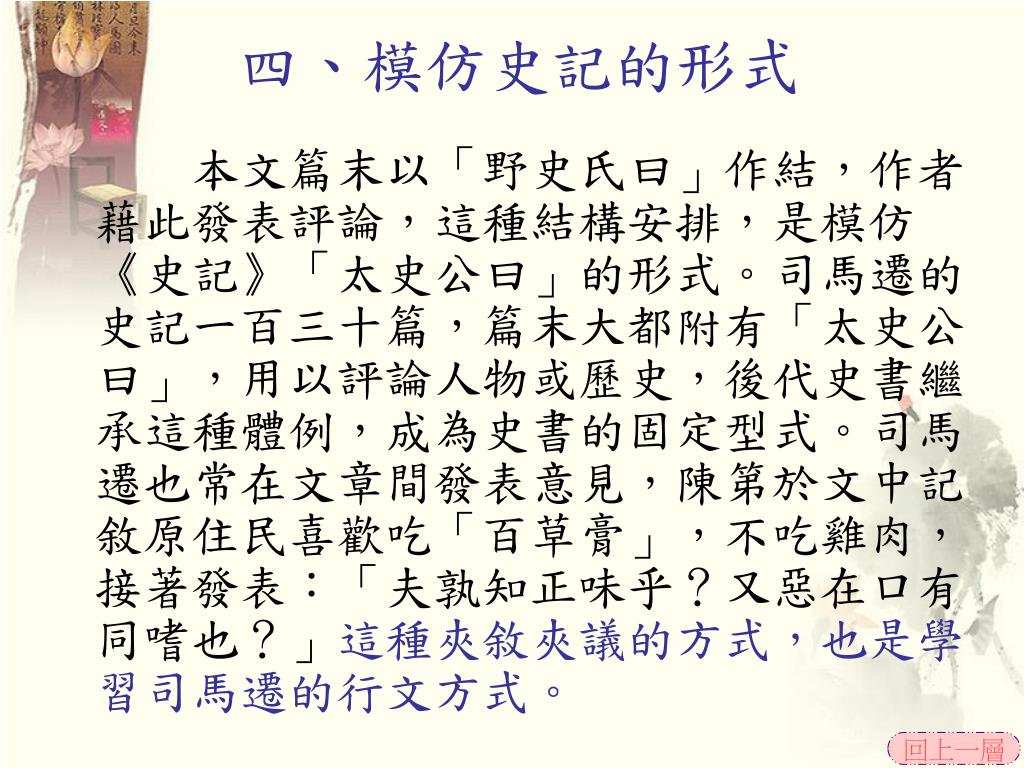 四、模仿史記的形式
本文篇末以「野史氏曰」作結，作者
藉此發表評論，這種結構安排，是模仿
《史記》「太史公曰」的形式。司馬遷的
史記一百三十篇，篇末大都附有「太史公
曰」，用以評論人物或歷史，後代史書繼
承這種體例，成為史書的固定型式。司馬
遷也常在文章間發表意見，陳第於文中記
敘原住民喜歡吃「百草膏」，不吃雞肉，
接著發表：「夫孰知正味乎？又惡在口有
同嗜也？」這種夾敘夾議的方式，也是學
習司馬遷的行文方式。
回上一層